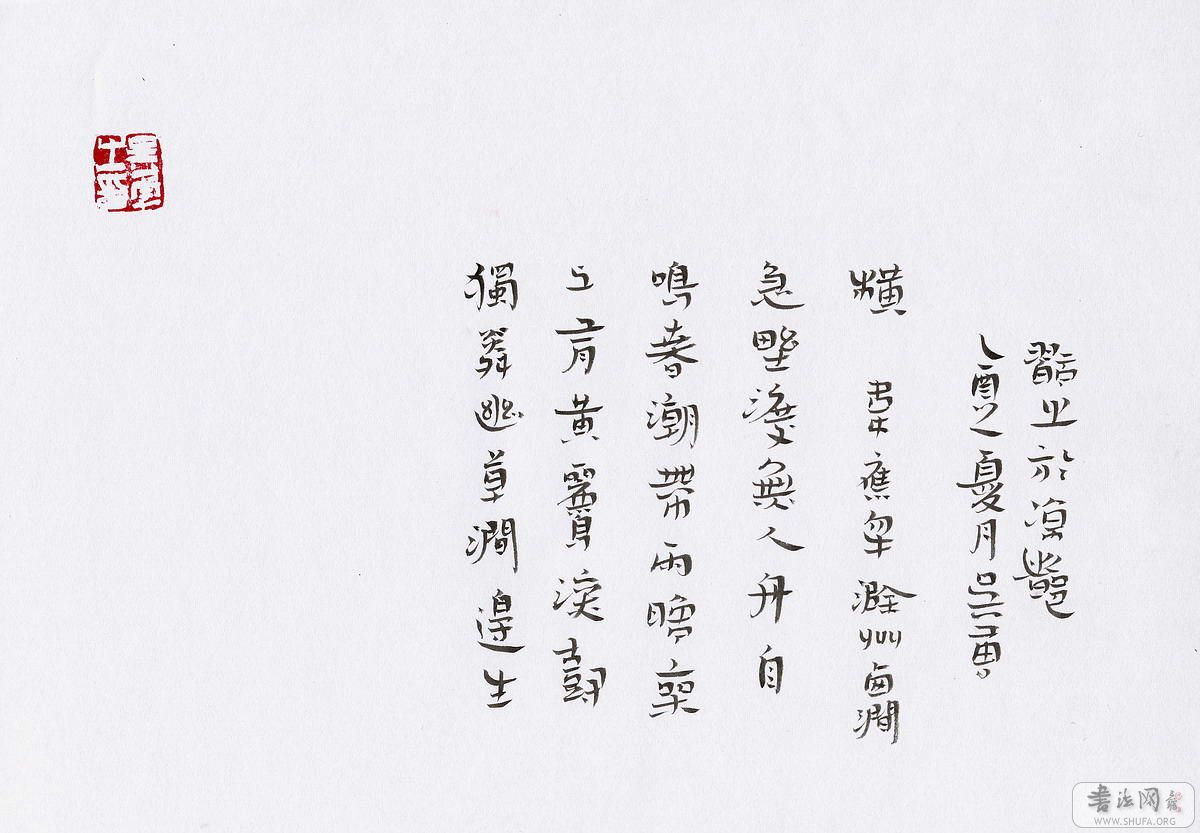 獨憐幽草澗邊生
上有黃鸝深樹
鳴春潮帶雨晚來
急野渡無人舟自
橫 韋應物滁州西澗
乙酉之夏月吳勇
之於
吳勇之印
书法网
WWW.SHUFA.ORG